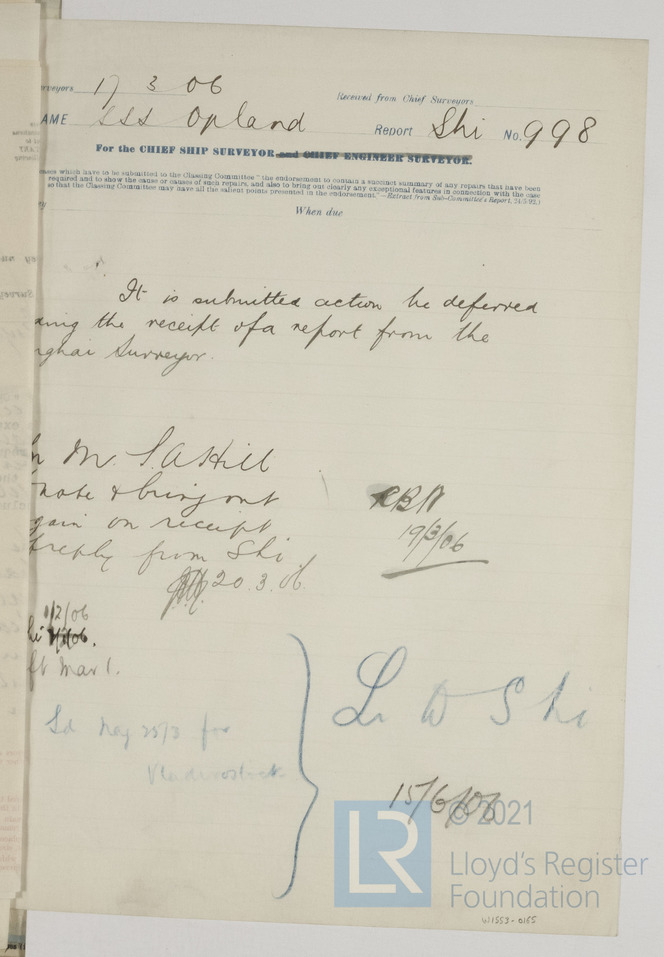 rveyors 17 3 06
Received from Chief Surveyors
AME SSS Opland Report Shi No. 998
For the CHIEF SHIP SURVEYOR and CHIEF ENGINEER SURVEYOR.
ases which have to be submitted to the Classing Committee "the endorsement to contain a succinct summary of any repairs that have been
required and to show the cause or causes of such repairs, and also to bring out clearly any exceptional features in connection with the case
so that the Classing Committee may have all the salient points presented in the endorsement."—Extract from Sub-Committee's Report, 24/5/92.)
When due
It is submitted action be deferred
ding the receipt of a report from the
nghai Surveyor.
M. S. A Hill
note & bring out
gain on receipt
reply from Shi
20.3.06.
19/3/06
1/2/06
Mar 1.
Ld Nag 25/3 for
Vladivostock
Lr W Shi
15/6/06
© 2021
LR
Lloyd's Register
Foundation
W1553-0155